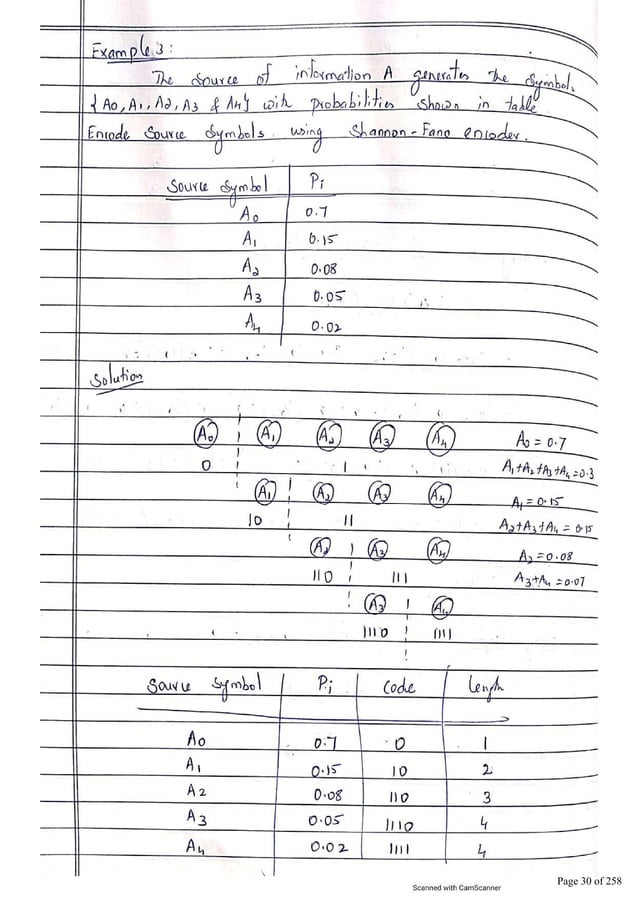 Example 3:
The source of information A generates the symbols
{A0, A1, A2, A3 & A4} with probabilities shown in table
Encode source symbols using Shannon-Fano encoder.
Source symbol Pi
A0 0.7
A1 0.15
A2 0.08
A3 0.05
A4 0.02
Solution
A0 A1 A2 A3 A4 A0 = 0.7
0 1 A1+A2+A3+A4=0.3
A1 A2 A3 A4 A1=0.15
10 11 A2+A3+A4 = 0.15
A2 A3 A4 A2=0.08
110 111 A3+A4=0.07
A3 A4
1110 1111
Source symbol Pi Code length
A0 0.7 0 1
A1 0.15 10 2
A2 0.08 110 3
A3 0.05 1110 4
A4 0.02 1111 4
Page 30 of 258
Scanned with CamScanner